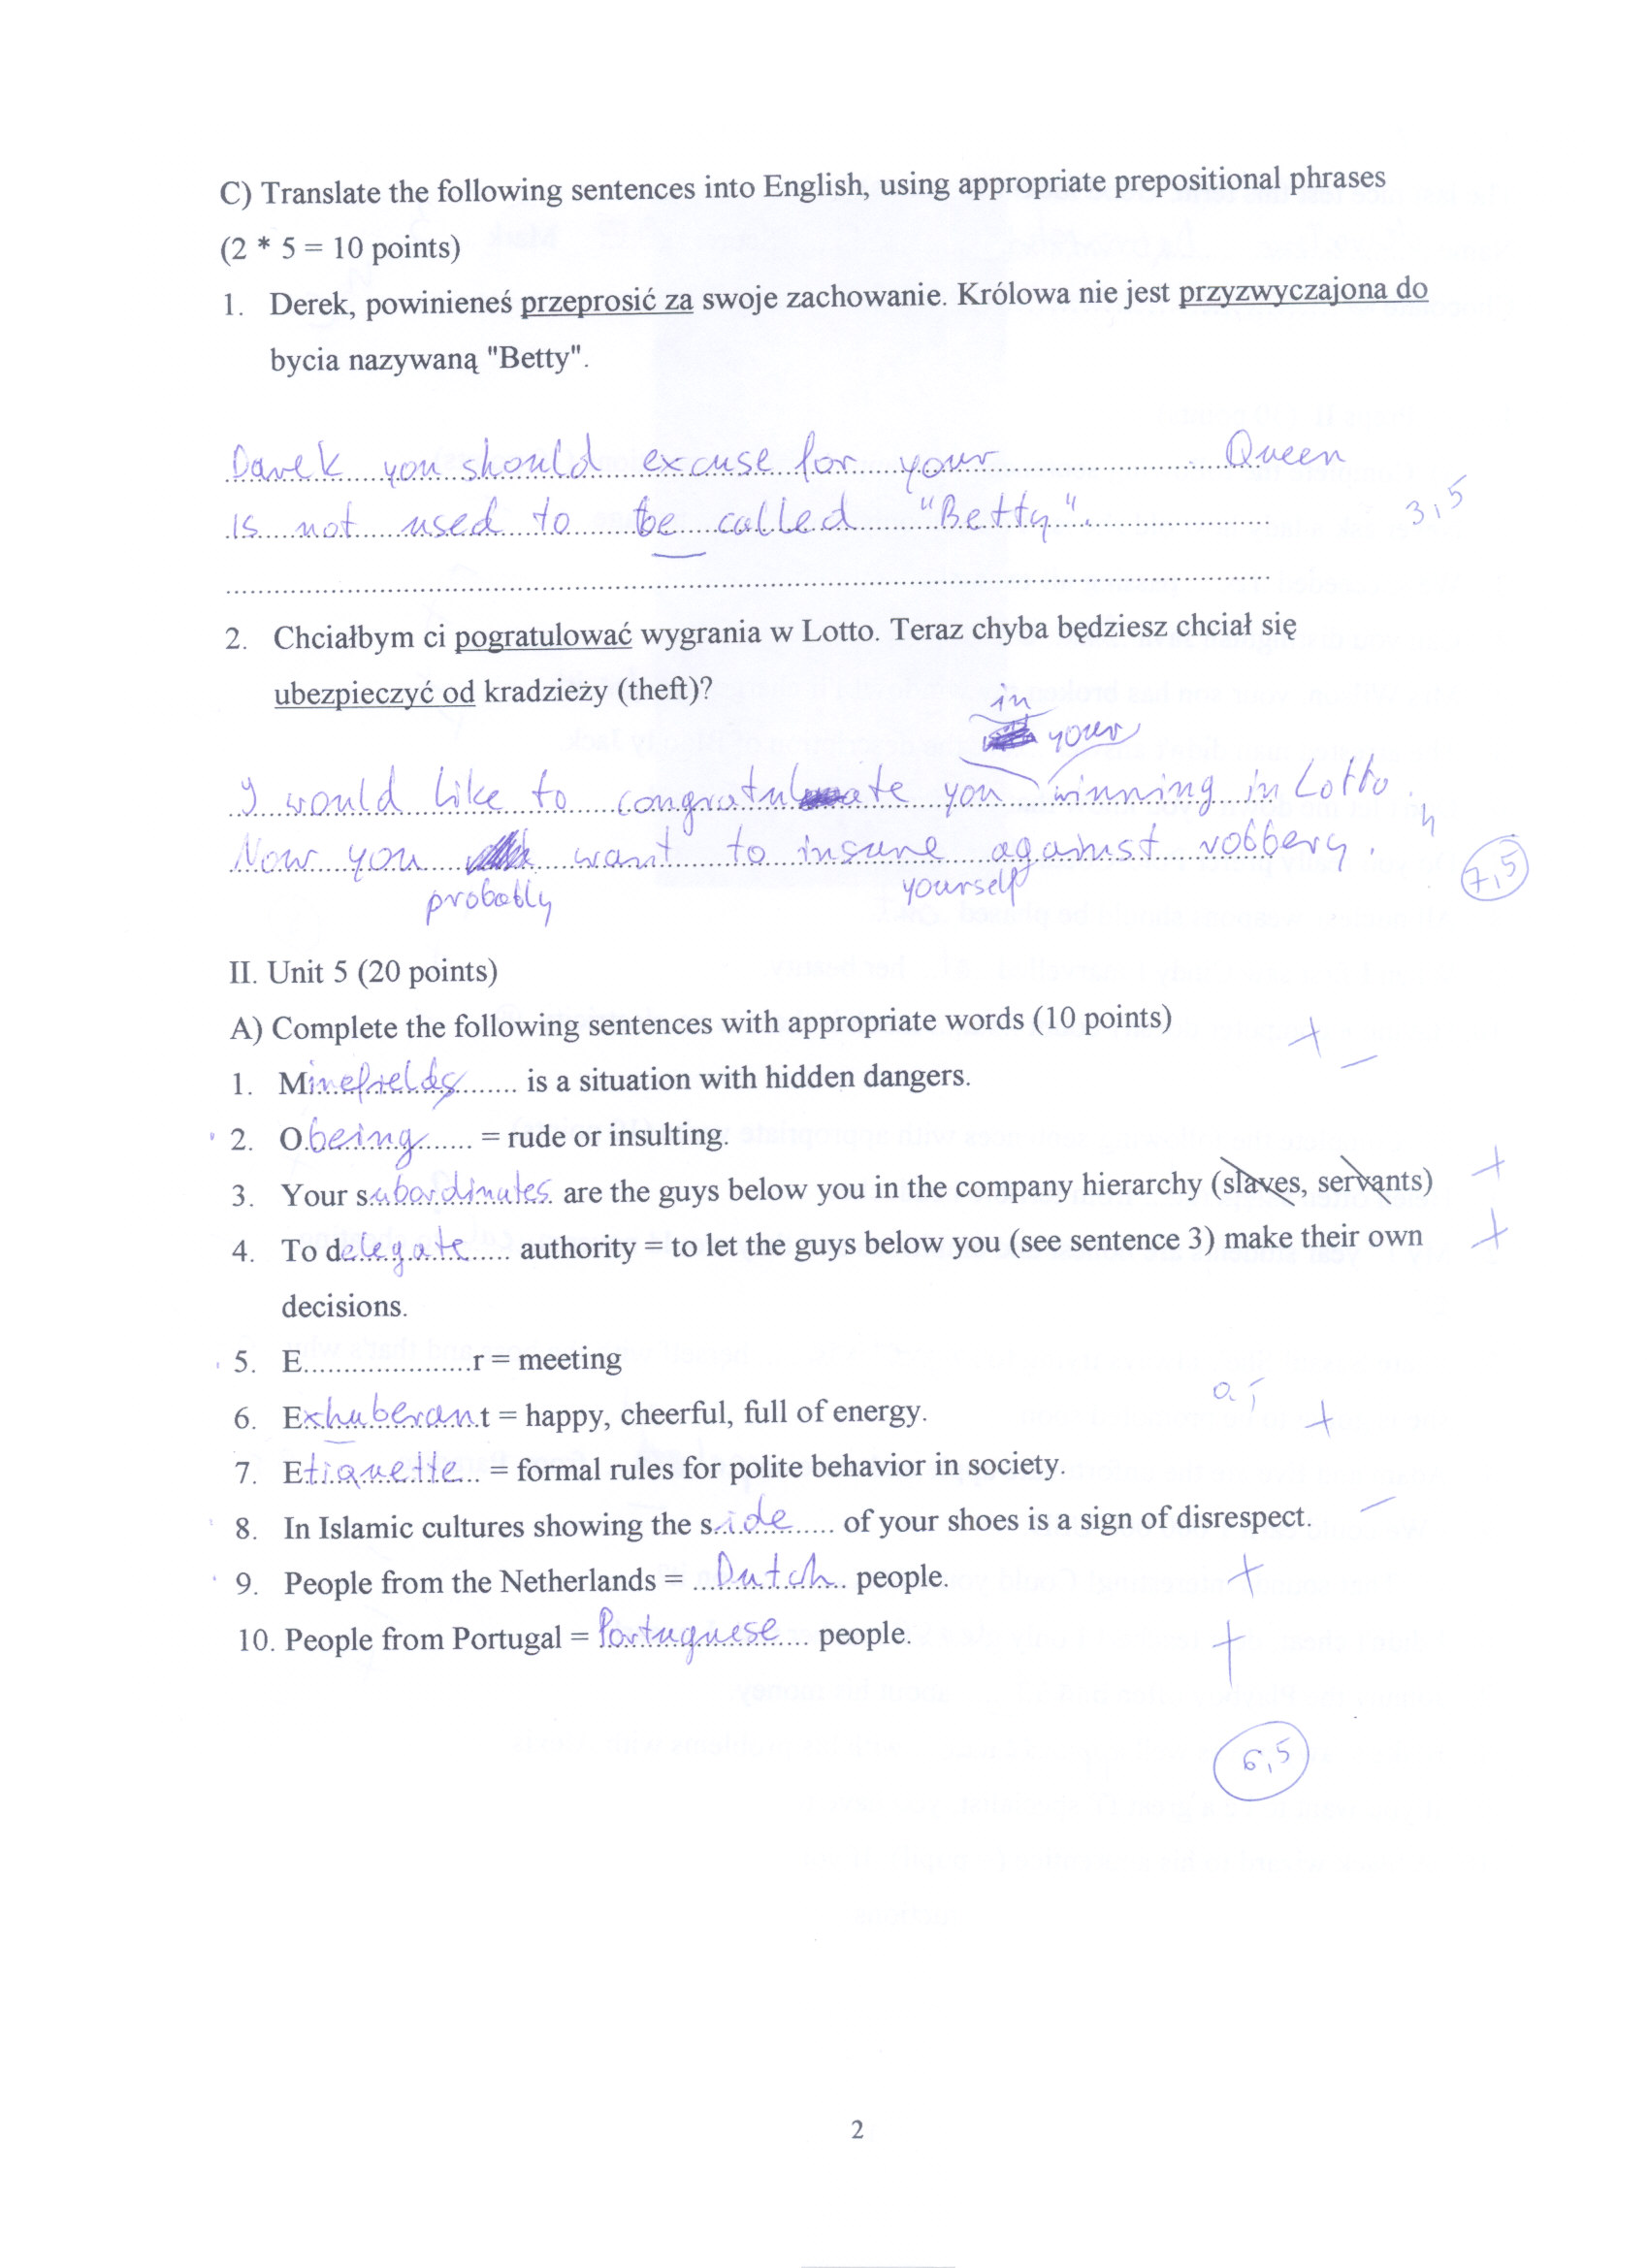 C) Translate the following sentences into English, using appropriate prepositional phrases
(2 * 5 = 10 points)
1. Derek, powinieneś przeprosić za swoje zachowanie. Królowa nie jest przyzwyczajona do
bycia nazywaną "Betty".
Darek you should excuse for your .................... Queen
is not used to be called "Betty".
3,5
2. Chciałbym ci pogratulować wygrania w Lotto. Teraz chyba będziesz chciał się
ubezpieczyć od kradzieży (theft)?
in
your
I would like to congratulate you winning in Lotto.
Now you want to insure against robbery.
4
probably yourself
7,5
II. Unit 5 (20 points)
A) Complete the following sentences with appropriate words (10 points)
+ –
1. Minefields is a situation with hidden dangers.
2. Obeing = rude or insulting.
3. Your subordinates are the guys below you in the company hierarchy (slaves, servants) +
4. To delegate authority = to let the guys below you (see sentence 3) make their own +
decisions.
5. E....................r = meeting
6. Exhuberant = happy, cheerful, full of energy. +
7. Etiquette = formal rules for polite behavior in society.
8. In Islamic cultures showing the side of your shoes is a sign of disrespect. –
9. People from the Netherlands = Dutch people. +
10. People from Portugal = Portuguese people. +
6,5
2